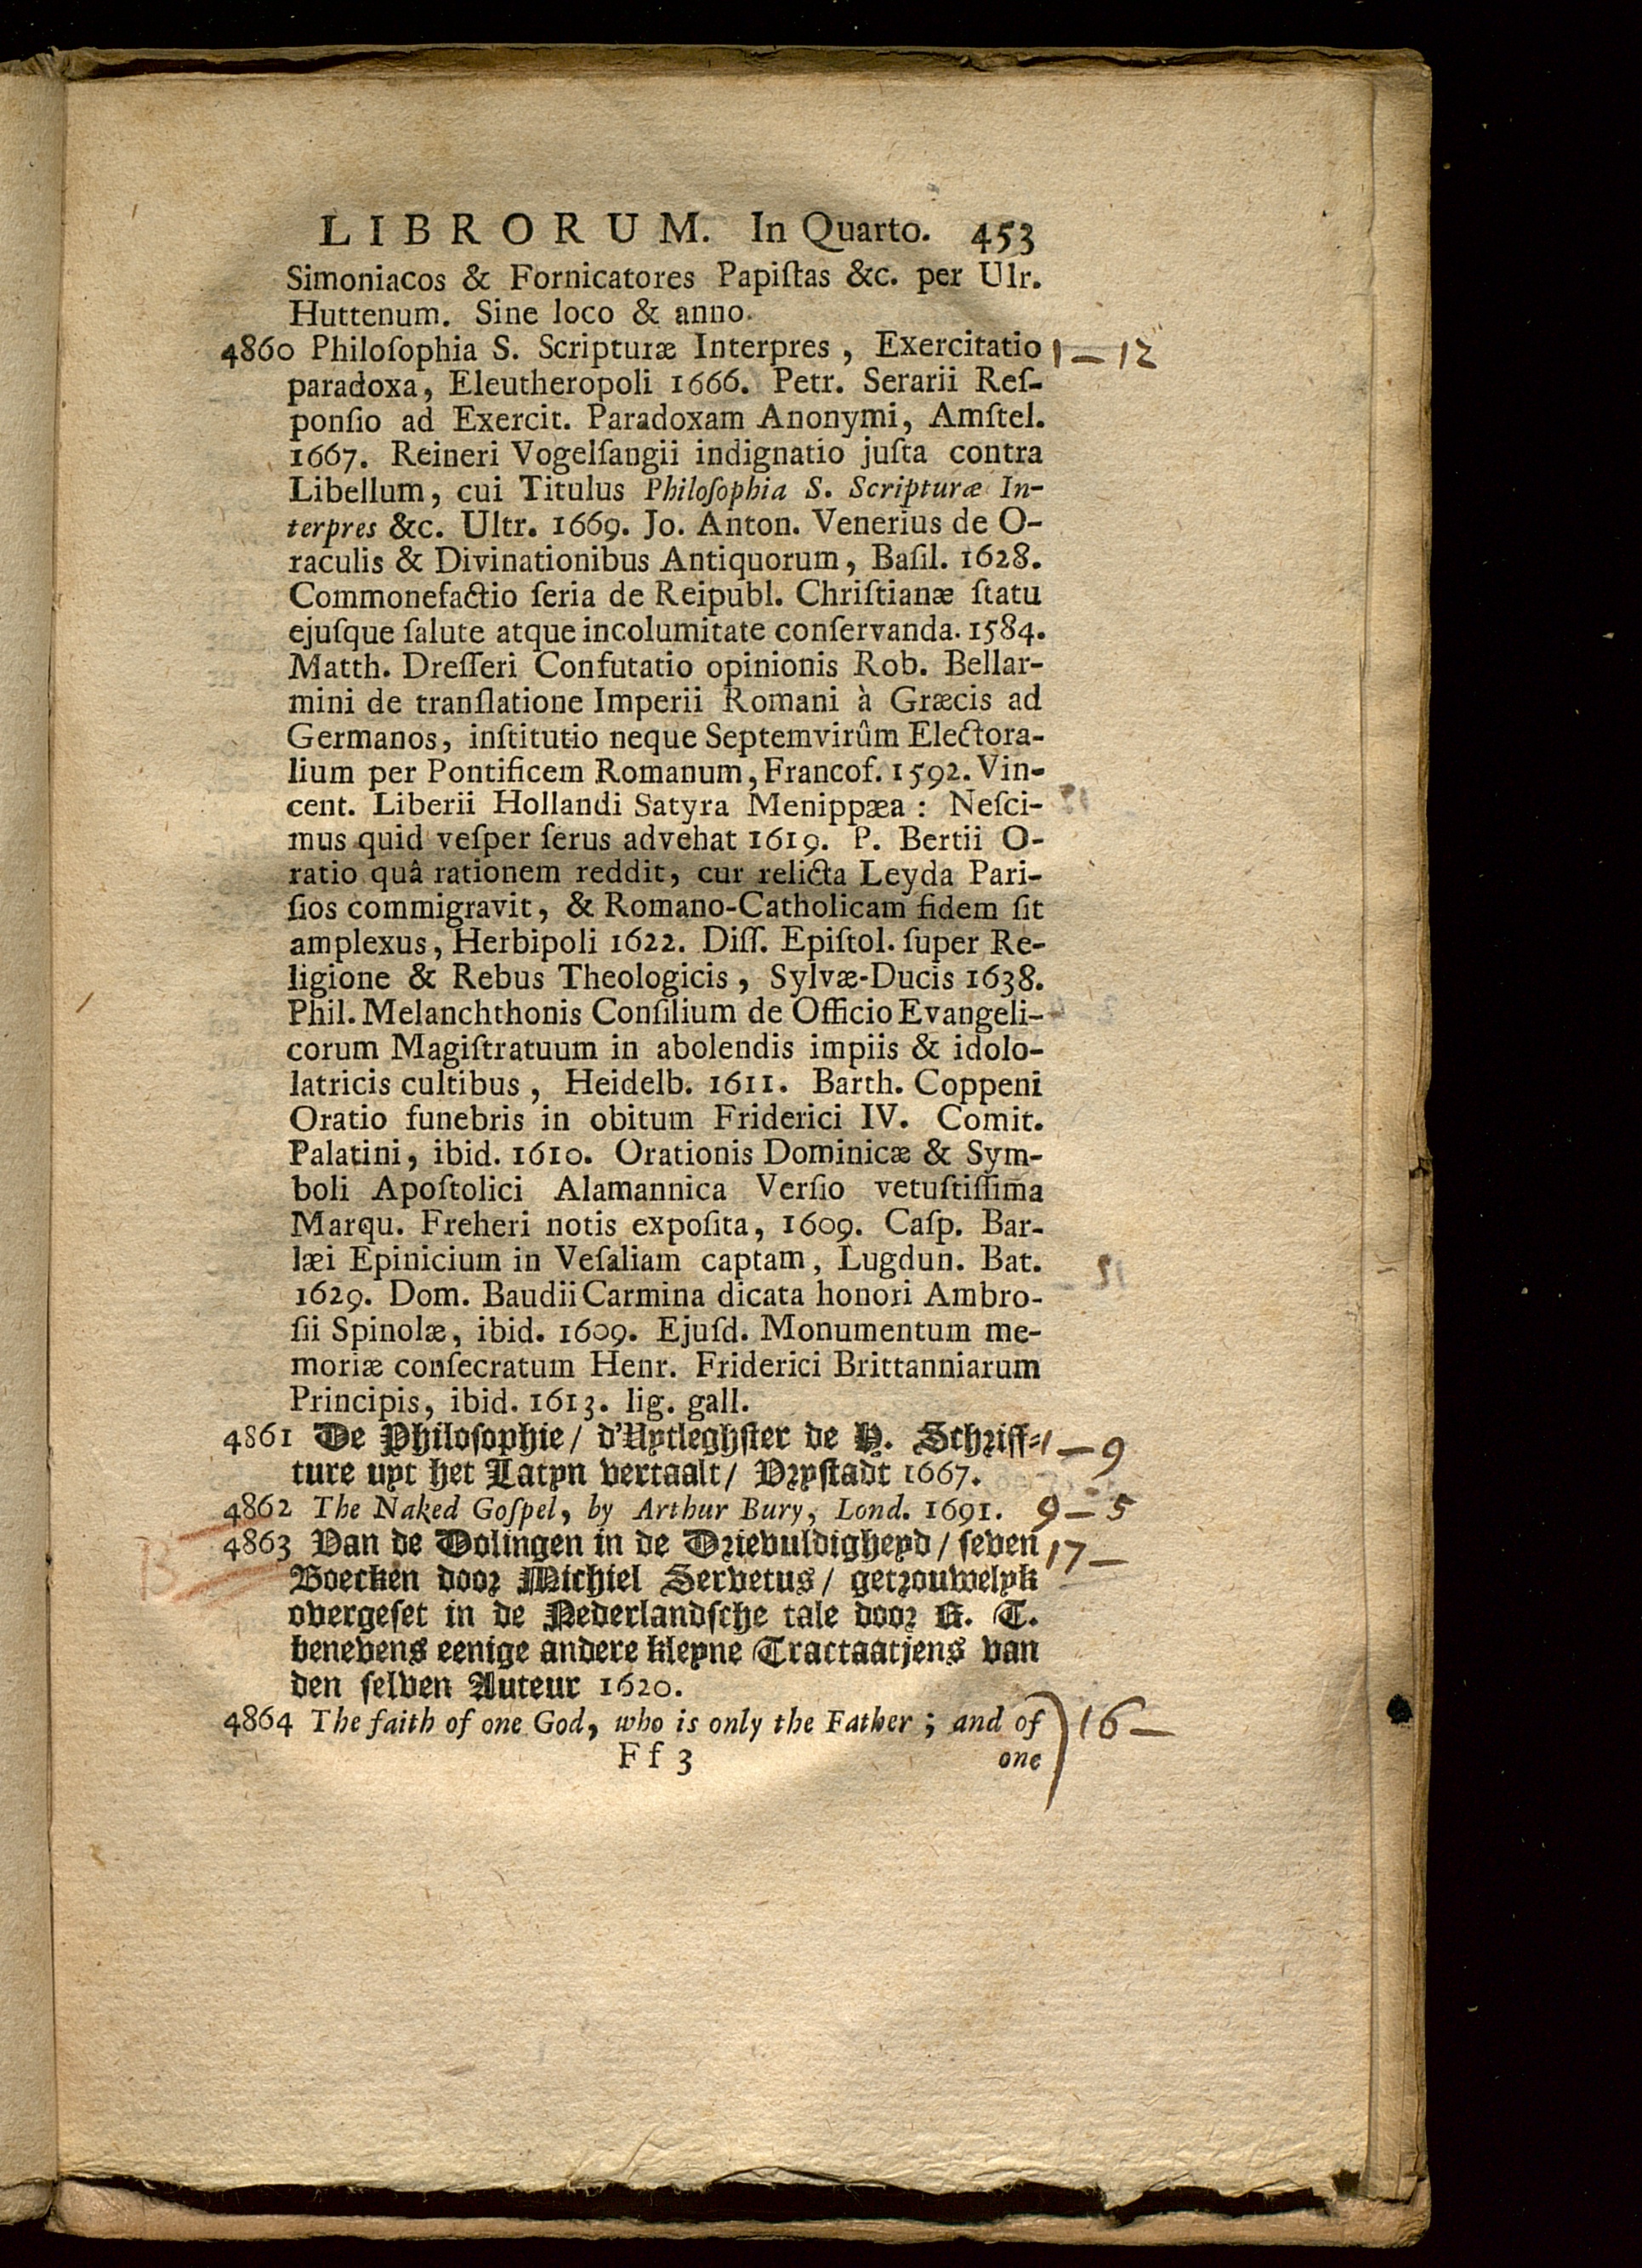 LIBRORUM. In Quarto. 453
Simoniacos & Fornicatores Papiſtas &c. per Ulr.
Huttenum. Sine loco & anno.
4860 Philoſophia S. Scripturæ Interpres, Exercitatio 1 — 12
paradoxa, Eleutheropoli 1666. Petr. Serarii Reſ-
ponſio ad Exercit. Paradoxam Anonymi, Amſtel.
1667. Reineri Vogelſangii indignatio juſta contra
Libellum, cui Titulus Philoſophia S. Scripturæ In-
terpres &c. Ultr. 1669. Jo. Anton. Venerius de O-
raculis & Divinationibus Antiquorum, Baſil. 1628.
Commonefactio ſeria de Reipubl. Chriſtianæ ſtatu
ejuſque ſalute atque incolumitate conſervanda. 1584.
Matth. Dreſſeri Confutatio opinionis Rob. Bellar-
mini de tranſlatione Imperii Romani à Græcis ad
Germanos, inſtitutio neque Septemvirûm Electora-
lium per Pontificem Romanum, Francof. 1592. Vin-
cent. Liberii Hollandi Satyra Menippæa: Neſci-
mus quid veſper ſerus advehat 1619. P. Bertii O-
ratio quâ rationem reddit, cur relicta Leyda Pari-
ſios commigravit, & Romano-Catholicam fidem ſit
amplexus, Herbipoli 1622. Diſſ. Epiſtol. ſuper Re-
ligione & Rebus Theologicis, Sylvæ-Ducis 1638.
Phil. Melanchthonis Conſilium de Officio Evangeli-
corum Magiſtratuum in abolendis impiis & idolo-
latricis cultibus, Heidelb. 1611. Barth. Coppeni
Oratio funebris in obitum Friderici IV. Comit.
Palatini, ibid. 1610. Orationis Dominicæ & Sym-
boli Apoſtolici Alamannica Verſio vetuſtiſſima
Marqu. Freheri notis expoſita, 1609. Caſp. Bar-
læi Epinicium in Veſaliam captam, Lugdun. Bat.
1629. Dom. Baudii Carmina dicata honori Ambro-
ſii Spinolæ, ibid. 1609. Ejuſd. Monumentum me-
moriæ conſecratum Henr. Friderici Brittanniarum
Principis, ibid. 1613. lig. gall.
4861 De Philoſophie / d'Uytleghſter de H. Schriff- 1 — 9
ture uyt het Latyn vertaalt / Vryſtadt 1667.
4862 The Naked Goſpel, by Arthur Bury, Lond. 1691. 9 — 5
4863 Van de Dolingen in de Drievuldigheyd / ſeven 17 —
B Boecken door Michiel Servetus / getrouwelyk
overgeſet in de Nederlandſche tale door R. T.
benevens eenige andere kleyne Tractaatjens van
den ſelven Auteur 1620.
4864 The faith of one God, who is only the Father; and of ) 16 —
Ff 3 one